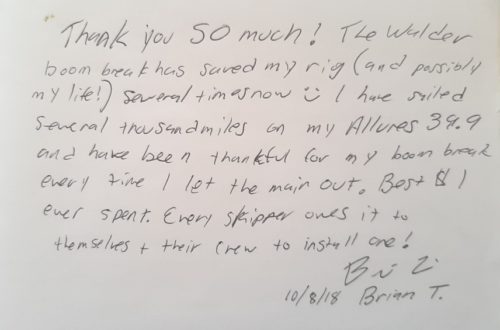 Thank you SO much! The Walder
boom break has saved my rig (and possibly
my life!) several times now :) I have sailed
several thousand miles on my Allures 39.9
and have been thankful for my boom break
every time I let the main out. Best $
ever spent. Every skipper owes it to
themselves + their crew to install one!
10/8/18 Brian T.